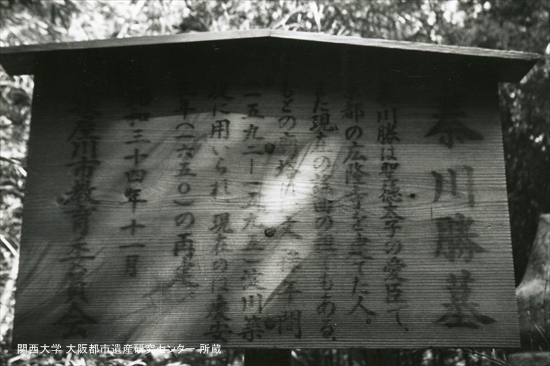 秦川勝墓
秦川勝は聖徳太子の愛臣て、
京都の広隆寺を建てた人
また現在の 祖でもある。
もとの 文 年間
(一五九二―一五九五)淀川築
堤に用いられ、現在のは慶安
三年(一六五〇)の再建
昭和三十四年十一月
寝屋川市教育委員会
関西大学 大阪都市遺産研究センター 所蔵